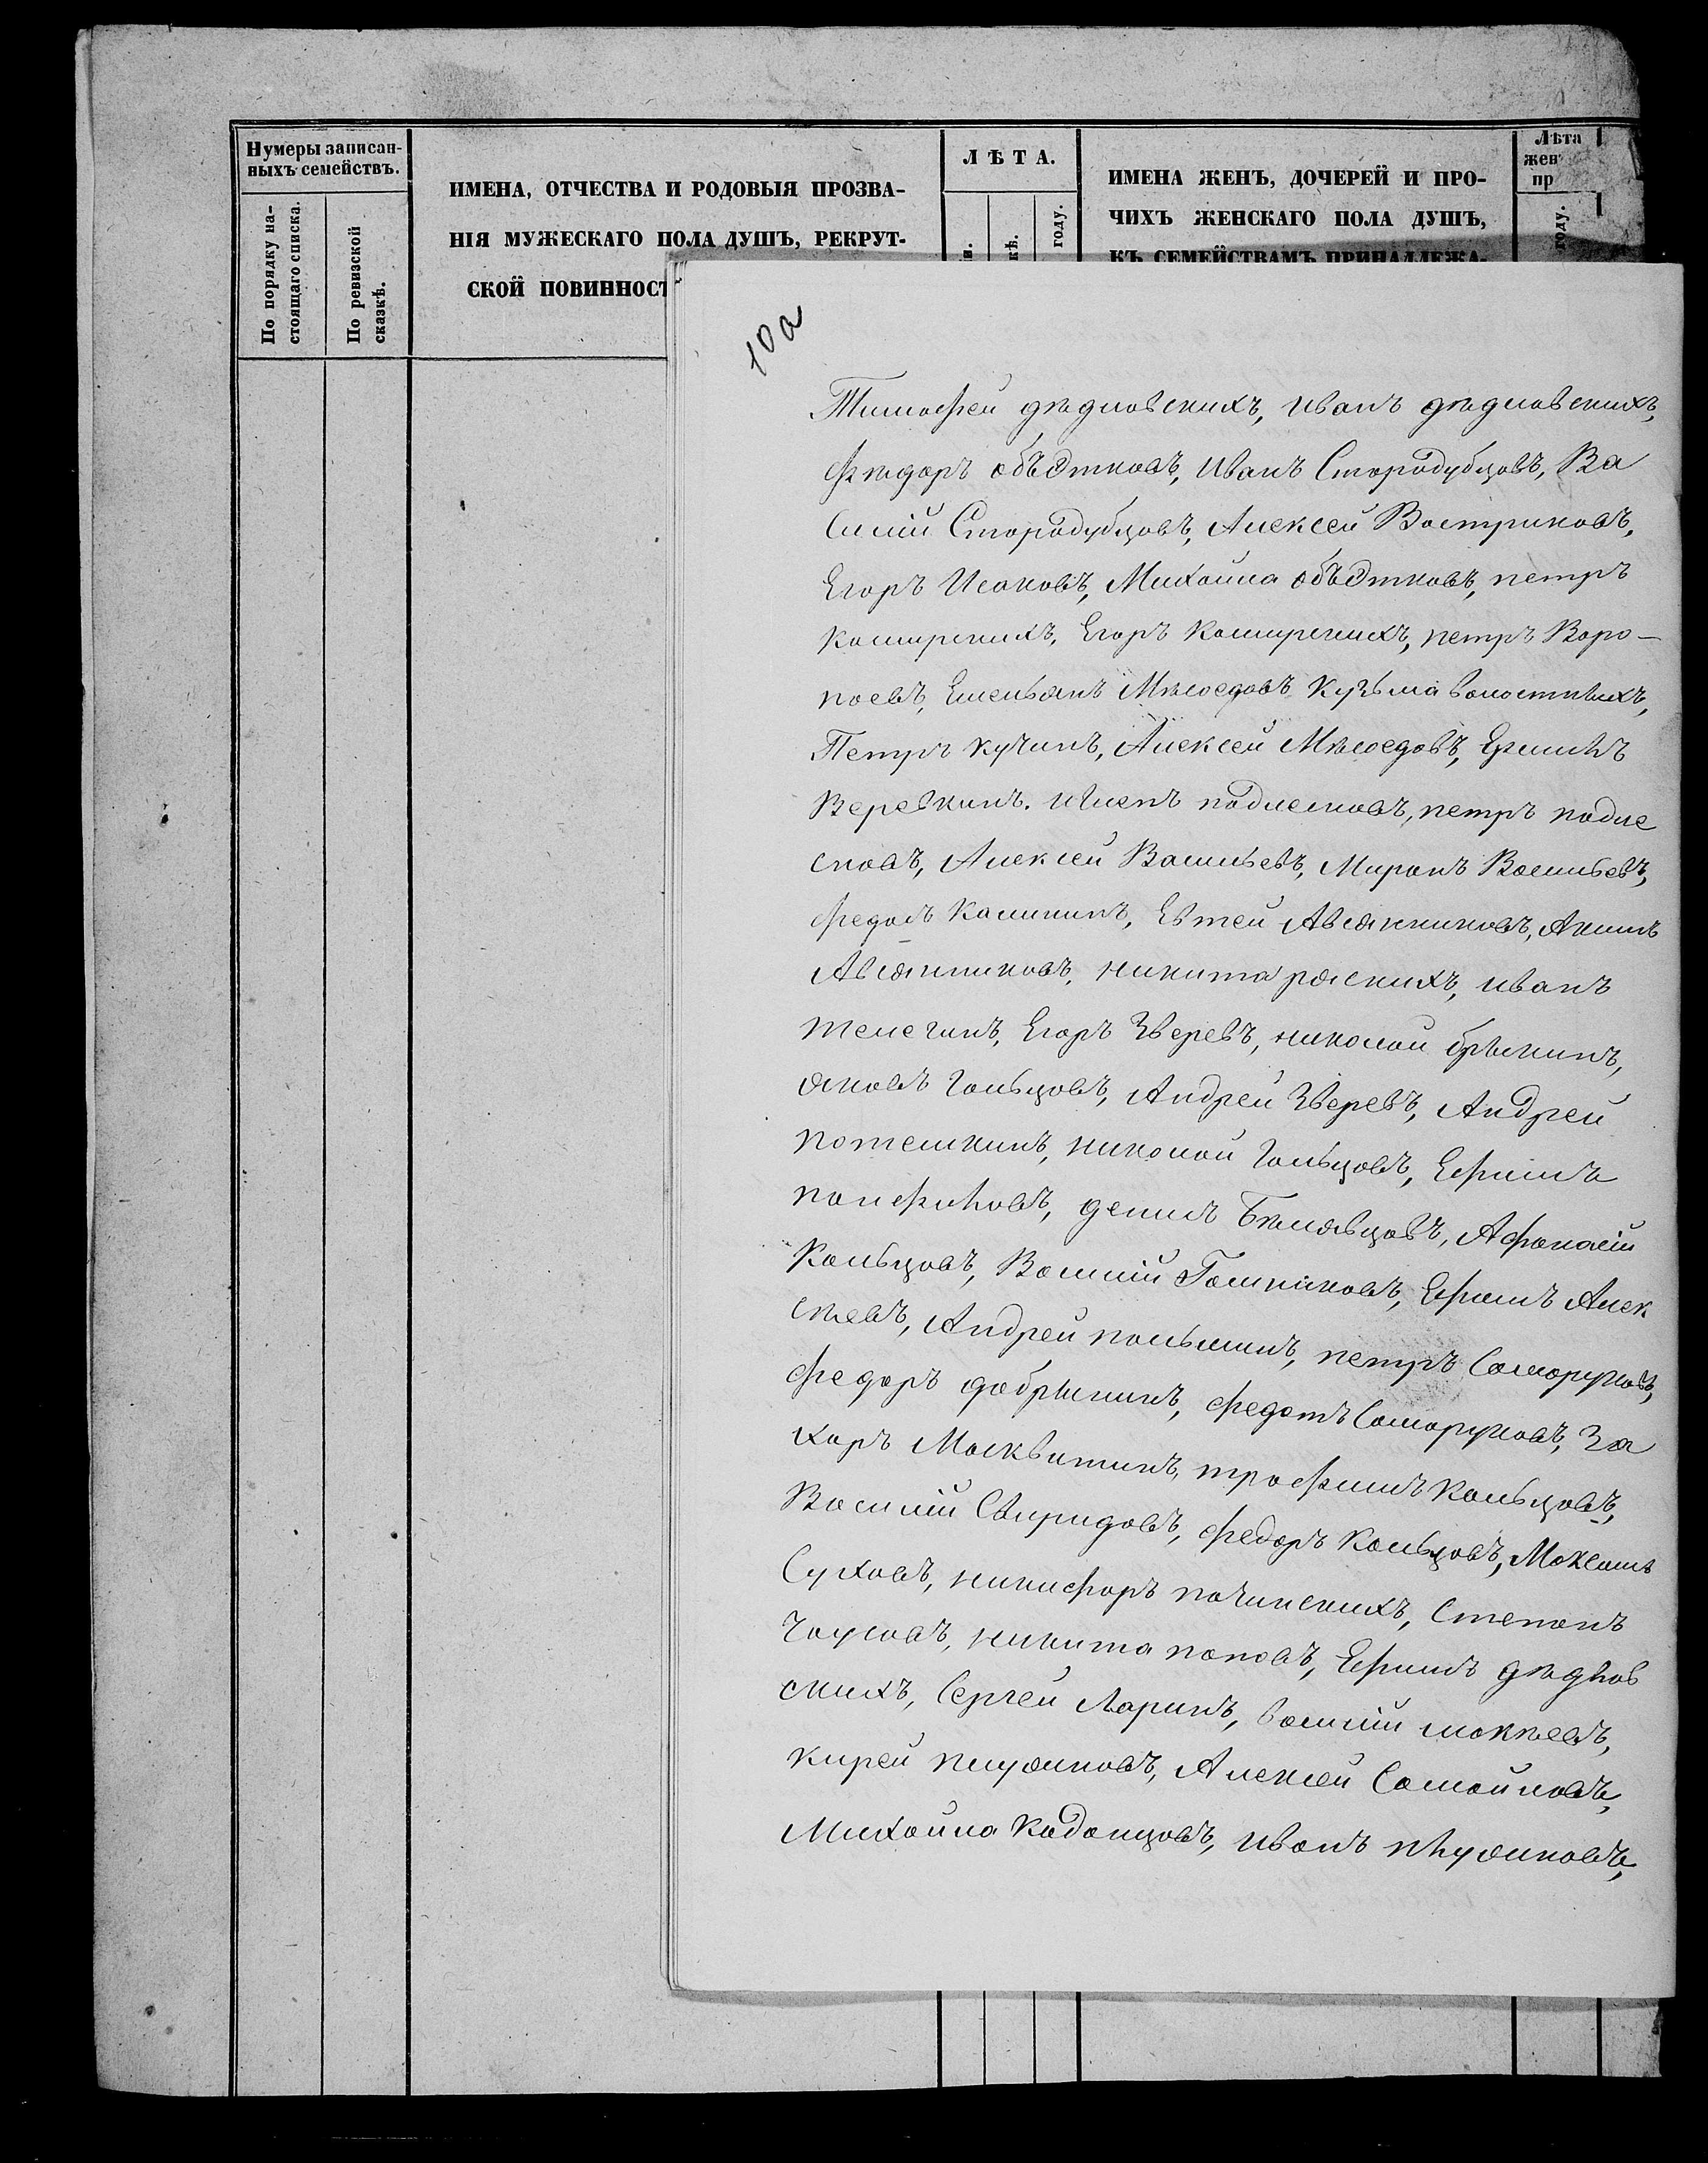 Нумеры записан-
ныхъ семействъ.
По порядку на-
стоящаго списка.
По ревизской
сказкѣ.
ИМЕНА, ОТЧЕСТВА И РОДОВЫЯ ПРОЗВА-
НІЯ МУЖЕСКАГО ПОЛА ДУШЪ, РЕКРУТ-
СКОЙ ПОВИННОСТ
ЛѢТА.
году.
ИМЕНА ЖЕНЪ, ДОЧЕРЕЙ И ПРО-
ЧИХЪ ЖЕНСКАГО ПОЛА ДУШЪ,
КЪ СЕМЕЙСТВАМЪ ПРИНАДЛЕЖА-
Лѣта
жен
пр
году.
10а
Тимофей дѣдловскихъ, иванъ дѣдловскихъ,
фѣдоръ объѣдковъ, иванъ Стародубцовъ, Ва
силій Стародубцовъ, Алексей Востриковъ,
Егоръ Исаковъ, Михайла объѣдковъ, петръ
каширскихъ, Егоръ каширскихъ, петръ Варо-
поевъ, Емельянъ Мѣлоедовъ Кузьма
Петръ кучинъ, Алексей Мѣлоедовъ,
Веревкинъ. подлесковъ, петръ подле
сковъ, Алексей Васильевъ, Миронъ Васильевъ,
федотъ калининъ, Евтей Авсянниковъ, Акимъ
Авсянниковъ, никита ряскихъ, иванъ
телегинъ, Егоръ Зверевъ, николай брыкинъ,
яковъ гольцовъ, Андрей Зверевъ, Андрей
потемкинъ, николай гольцовъ, Ефимъ
панфиловъ, демидъ Бѣлявцовъ, Афонасій
Кольцовъ, Василій Ефимъ Алек
сѣевъ, Андрей польшинъ, петръ Саморуковъ,
федоръ добрынинъ, федотъ Саморуковъ, За
харъ Москвитинъ, трофимъ Кольцовъ,
Василій Свиридовъ, федоръ Кольцовъ, Максимъ
Суховъ, никифоръ починскихъ, Степанъ
Чаусовъ, никита поповъ, Ефимъ дѣдлов
скихъ, Сергей Ларинъ, василій мокѣевъ,
кирей Алексей Самойловъ,
Михайла Кадонцовъ, иванъ